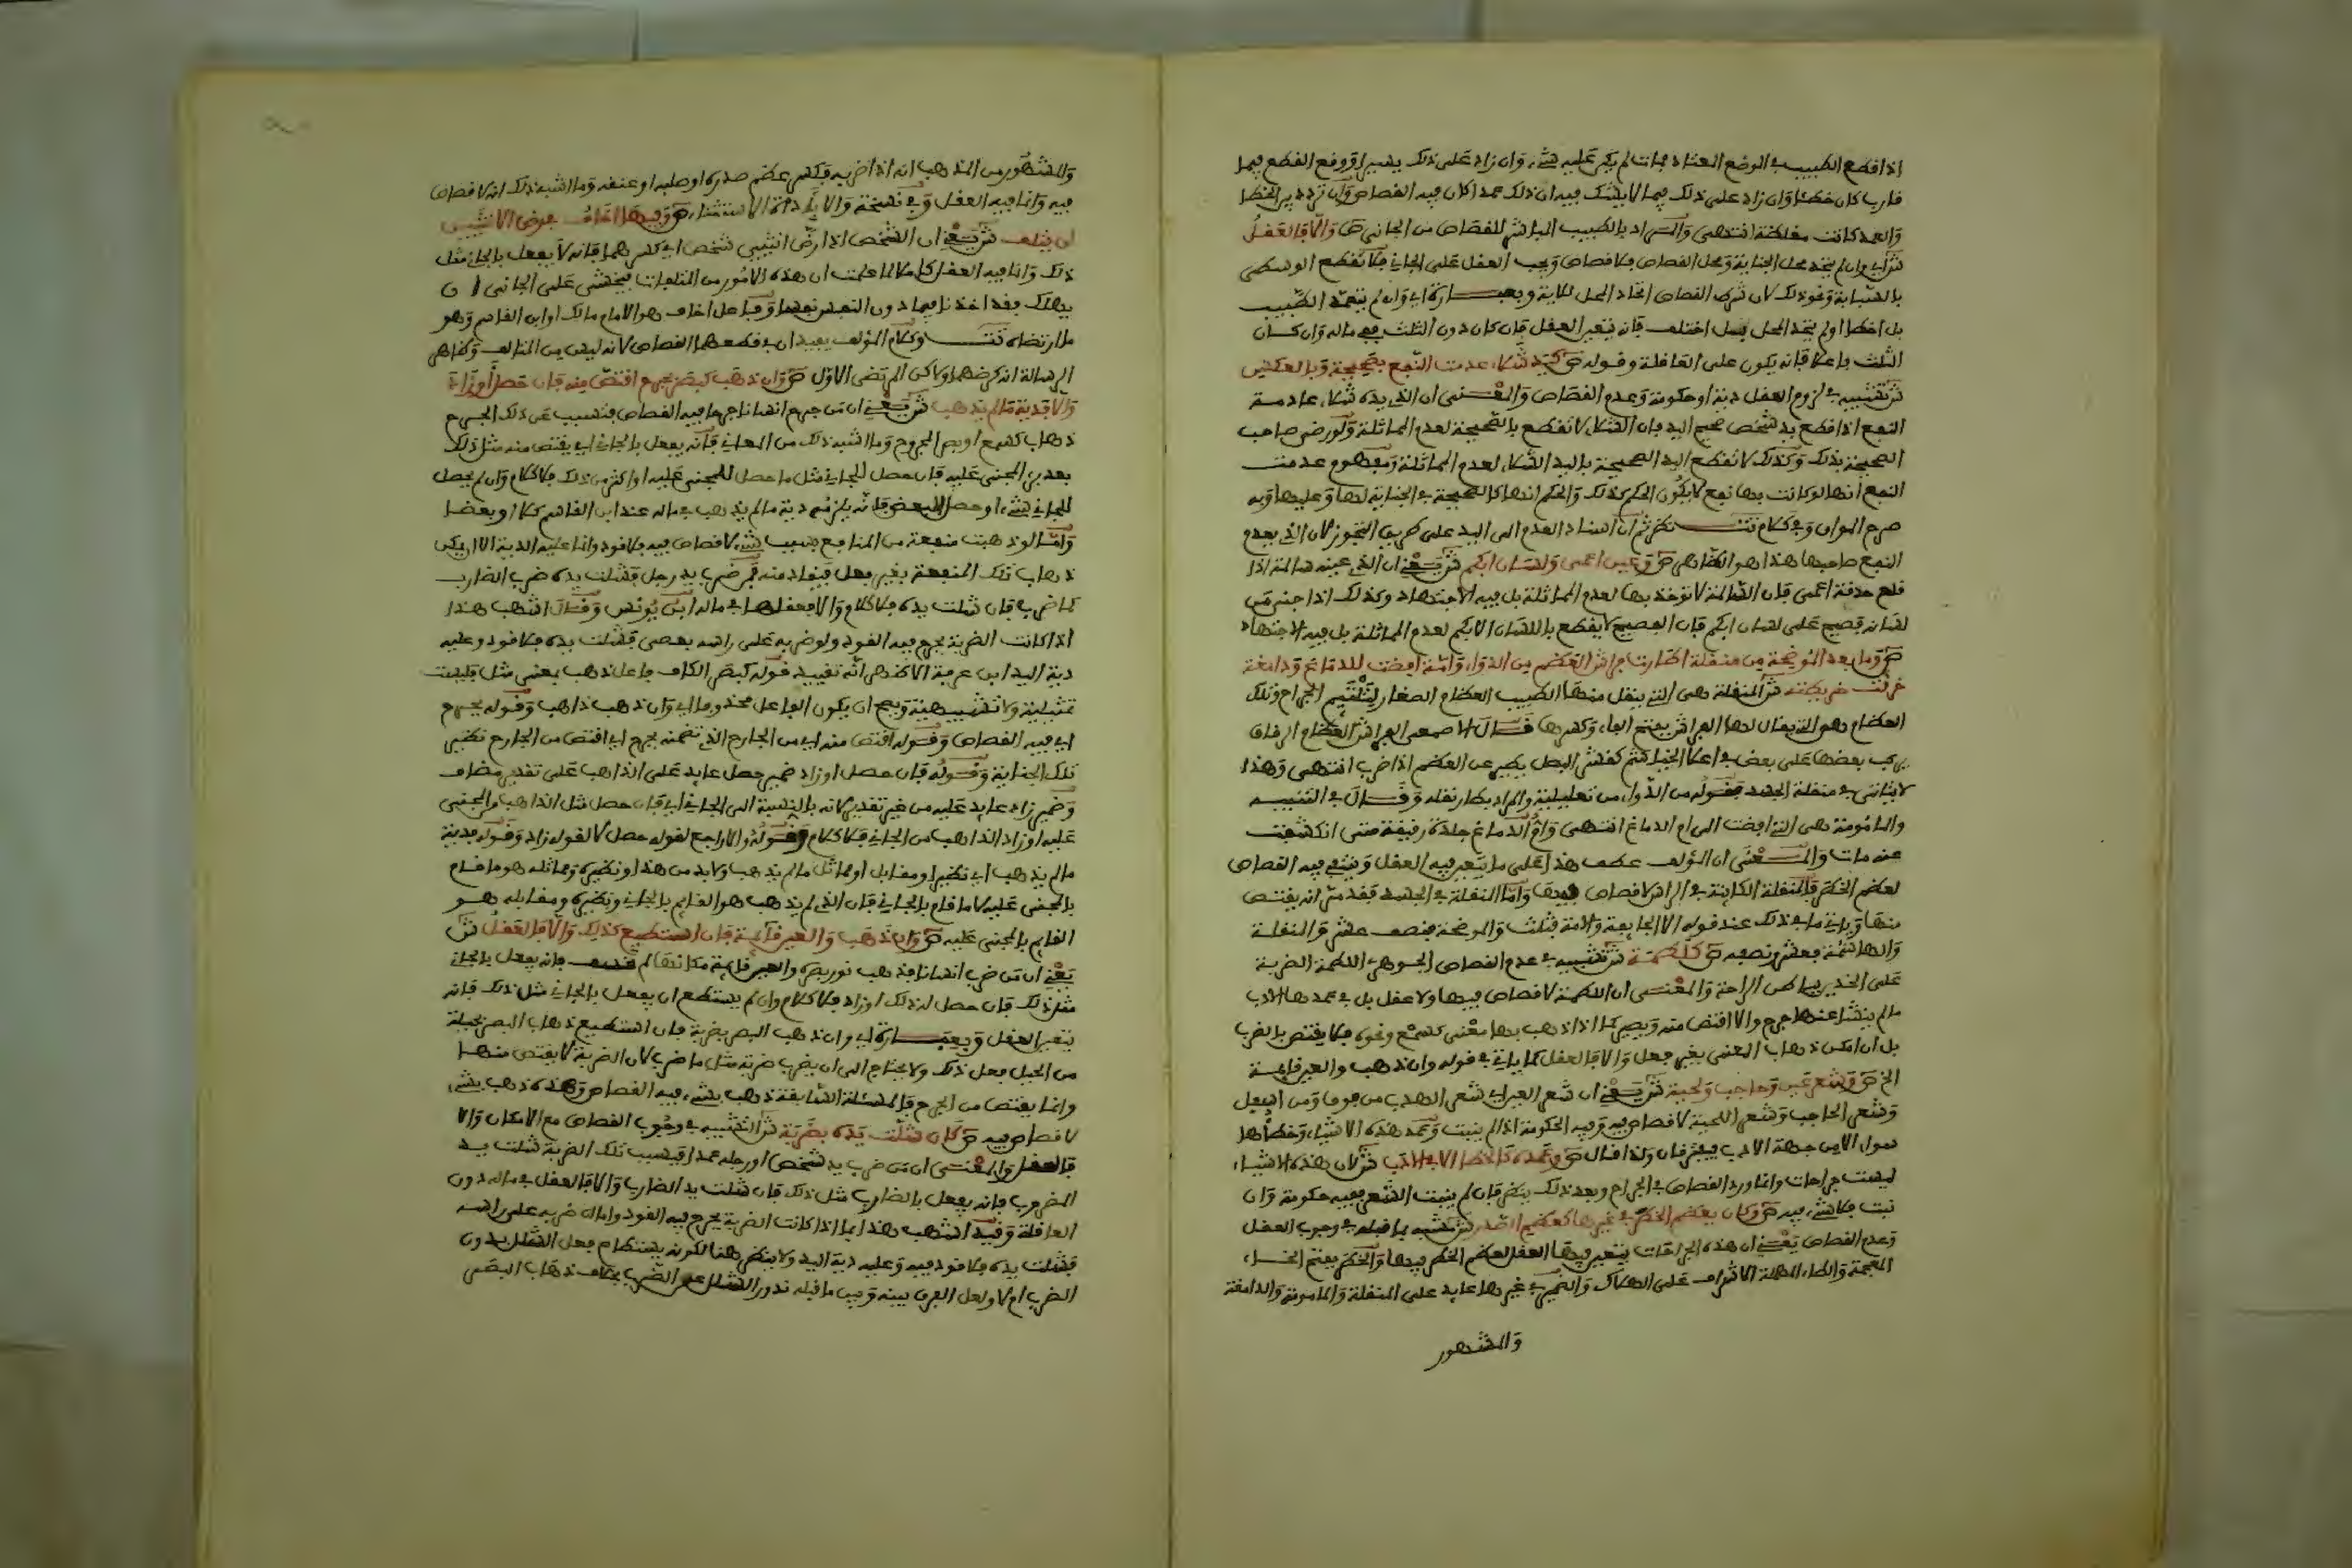 اذا قطع الطبيب في الموضع المعتاد فمات لم يكن عليه شيء وان زاد على ذلك يسيرا ووقع القطع فيما
قارب كان خطئا وان زاد على ذلك فيما لا يشك فيه ان ذلك عمد كان فيه القصاص وان تردد بين الخطا
والعمد كانت مغلظة انتهى والمراد بالطبيب المباشر للقصاص من الجاني ص والا فالعقل
ش اي وان لم يتحد محل الجناية ومحل القصاص فلا قصاص ويجب العقل على الجاني فلا تقطع الوسطى
بالسبابة ونحو ذلك لان شرط القصاص اتحاد المحل للاية وبعبارة اي وان لم يتعمد الطبيب
بل اخطا او لم يتحد المحل بل اختلف فانه يتعين العقل فان كان دون الثلث ففي ماله وان كان
الثلث فاعلا فانه يكون على العاقلة وقوله ص كيد شلاء عدمت النفع بصحيحة وبالعكس
ش تشبيه في لزوم العقل دية او حكومة وعدم القصاص والمعنى ان الذي يده شلاء عادمة
النفع اذا قطع يد شخص صحيح اليد فان الشلاء لا تقطع بالصحيحة لعدم المماثلة ولو رضي صاحب
الصحيحة بذلك وكذلك لا تقطع اليد الصحيحة باليد الشلاء لعدم المماثلة ومفهوم عدمت
النفع انها لو كانت بها نفع لا يكون الحكم كذلك والحكم انها كالصحيحة في الجناية لها وعليها وبه
صرح المواق وفي كلام تت نظر ثم ان اسناد العدم الى اليد على طريق التجوز لان الذي يعدم
النفع صاحبها هذا هو الظاهر ص وعين اعمى ولسان ابكم ش يعني ان الذي عينه سالمة اذا
قلع حدقة اعمى فان السالمة لا توخذ بها لعدم المماثلة بل فيه الاجتهاد وكذلك اذا جنى من
لسانه فصيح على لسان ابكم فان الفصيح لا يقطع باللسان الابكم لعدم المماثلة بل فيه الاجتهاد
ص وما بعد الموضحة من منقلة اطارت فراش العظم من الدواء وآمة افضت للدماغ ودامغة
خرقت خريطته ش المنقلة هي التي ينقل منها الطبيب العظام الصغار لتلتئم الجراح وتلك
العظام هي التي يقال لها الفراش بفتح الفاء وكسرها قال الاصمعي الفراش العظام الرقاق
يركب بعضها على بعض في اعلا الخياشم كقشر البصل يطير عن العظم اذا ضرب انتهى وهذا
لا يتاتى في منقلة الجسد فقوله من الدواء من تعليلية والمراد بطارنقله وقال في التنبيه
والمامومة هي التي افضت الى ام الدماغ انتهى وام الدماغ جلدة رقيقة متى انكشفت
عنه مات والمعنى ان المؤلف عطف هذا على ما يتعين فيه العقل وينتفي فيه القصاص
لعظم الخطر فالمنقلة الكاينة في الراس لا قصاص فيها واما المنقلة في الجسد فقد مر انه يقتص
منها وياتي ما في ذلك عند قوله الا الجايفة والامة فثلث والموضحة فنصف عشر والمنقلة
والهاشمة فعشر ونصفه ص كلطمة ش تشبيه في عدم القصاص الجوهري اللطمة الضربة
على الخد بباطن الراحة والمعنى ان اللطمة لا قصاص فيها ولا عقل بل في عمدها الادب
ما لم ينشا عنها جرح والا اقتص منه ويصير كما اذا ذهب بها معنى كسمع ونحوه فلا يقتص بالضرب
بل ان امكن ذهاب المعنى بغير فعل والا فالعقل كما ياتي في قوله وان ذهب والعين قايمة
الخ ص وشعر عين وحاجب ولحية ش يعني ان شعر العين اي شعر الهدب من فوق ومن اسفل
وشعر الحاجب وشعر اللحية لا قصاص فيه وفيه الحكومة اذا لم ينبت وعمد هذه الاشياء وخطأها
سواء الا من جهة الادب فيفترقان ولذا قال ص وعمده كالخطا الا في الادب ش لان هذه الاشياء
ليست جراحات وانما ورد القصاص في الجراح وبعد ذلك ينظر فان لم ينبت الشعر ففيه حكومة وان
نبت فلا شيء فيه ص وكان يعظم الخطر في غيرها كعظم الصدر ش تشبيه بما قبله في وجوب العقل
وعدم القصاص يعني ان هذه الجراحات يتعين فيها العقل لعظم الخطر فيها والخطر بفتح الخاء
المعجمة والطاء المهملة الاشراف على الهلاك والضمير في غيرها عايد على المنقلة والمامومة والدامغة
والمشهور
والمشهور من المذهب انه اذا ضربه فكسر عظم صدره او صلبه او عنقه وما اشبه ذلك انه لا قصاص
فيه وانما فيه العقل وفي نسخة والا بأداة الاستثناء ص وفيها اخاف في رض الانثيين
ان يتلف ش يعني ان الشخص اذا رض انثيي شخص اي كسرهما فانه لا يفعل بالجاني مثل
ذلك وانما فيه العقل كاملا لما علمت ان هذه الامور من المتلفات فيخشى على الجاني ان
يهلك فقد اخذنا فيما دون النفس نفسا وفاعل اخاف هو الامام مالك او ابن القاسم وهو
ما ارتضاه تت وكلام المؤلف يفيد ان في قطعهما القصاص لانه ليس من المتالف وظاهر
الرسالة انه كرضهما ولاكن المرتضى الاول ص وان ذهب كبصر بجرح اقتص منه فان حصل او زاد
والا فدية ما لم يذهب ش يعني ان من جرح انسانا جرحا فيه القصاص فتسبب عن ذلك الجرح
ذهاب كسمع او بصر المجروح وما اشبه ذلك من المعاني فانه يفعل بالجاني اي يقتص منه مثل ذلك
بعد برء المجني عليه فان حصل للجاني مثل ما حصل للمجني عليه او اكثر من ذلك فلا كلام وان لم يحصل
للجاني شيء او حصل البعض فانه يلزمه دية ما لم يذهب في ماله عند ابن القاسم كلا او بعضا
واما لو ذهبت منفعة من المنافع بسبب شيء لا قصاص فيه فلا قود وانما عليه الدية الا ان يمكن
ذهاب تلك المنفعة بغير فعل فيفاد منه فمن ضرب يد رجل فشلت يده ضرب الضارب
كما ضرب فان شلت يده فلا كلام والا فعقلها في ماله ابن يونس وقال اشهب هذا
اذا كانت الضربة بجرح فيه القود ولو ضربه على راسه بعصى فشلت يده فلا قود وعليه
دية اليد ابن عرفة الاظهر انه تقييد قوله كبصر الكاف فاعل ذهب بمعنى مثل فليست
تمثيلية ولا تشبيهية ويصح ان يكون الفاعل محذوفا اي وان ذهب ذاهب وقوله بجرح
اي فيه القصاص وقوله اقتص منه اي من الجارح الذي تضمنه بجرح اي اقتص من الجارح نظير
تلك الجناية وقوله فان حصل او زاد ضمير حصل عايد على الذاهب على تقدير مضاف
وضمير زاد عايد عليه من غير تقدير كانه بالنسبة الى الجاني اي فان حصل مثل الذاهب من المجني
عليه او زاد الذاهب من الجاني فلا كلام وقوله والا راجع لقوله حصل لا لقوله زاد وقوله فدية
ما لم يذهب اي نظير او مقابل او مماثل ما لم يذهب ولا بد من هذا ونظيره ومماثله هو ما قام
بالمجني عليه لا ما قام بالجاني فان الذي لم يذهب هو القايم بالجاني ونظيره ومقابله هو
القايم بالمجني عليه ص وان ذهب والعين قايمة فان استطيع كذلك والا فالعقل ش
يعني ان من ضرب انسانا فذهب نور بصره والعين قايمة مكانها لم تخسف فانه يفعل بالجاني
مثل ذلك فان حصل له ذلك او زاد فلا كلام وان لم يستطع ان يفعل بالجاني مثل ذلك فانه
يتعين العقل وبعبارة اي وان ذهب البصر بضربة فان استطيع ذهاب البصر بحيلة
من الحيل فعل ذلك ولا يحتاج الى ان يضرب ضربة مثل ما ضرب لان الضربة لا يقتص منها
وانما يقتص من الجرح فالمسئلة السابقة ذهب بشيء فيه القصاص وهذه ذهب بشيء
لا قصاص فيه ص كان شلت يده بضربة ش التشبيه في وجوب القصاص مع الامكان والا
فالعقل والمعنى ان من ضرب يد شخص او رجله عمدا فبسبب تلك الضربة شلت يد
المضروب فانه يفعل بالضارب مثل ذلك فان شلت يد الضارب والا فالعقل في ماله دون
العاقلة وقيد اشهب هذا بما اذا كانت الضربة بجرح فيه القود واما ان ضربه على راسه
فشلت يده فلا قود فيه وعليه دية اليد ولا ينظر هنا لكونه يستطاع فعل الشلل بدون
الضرب ام لا ولعل الفرق بينه وبين ما قبله ندور الشلل عن الضرب بخلاف ذهاب البصر